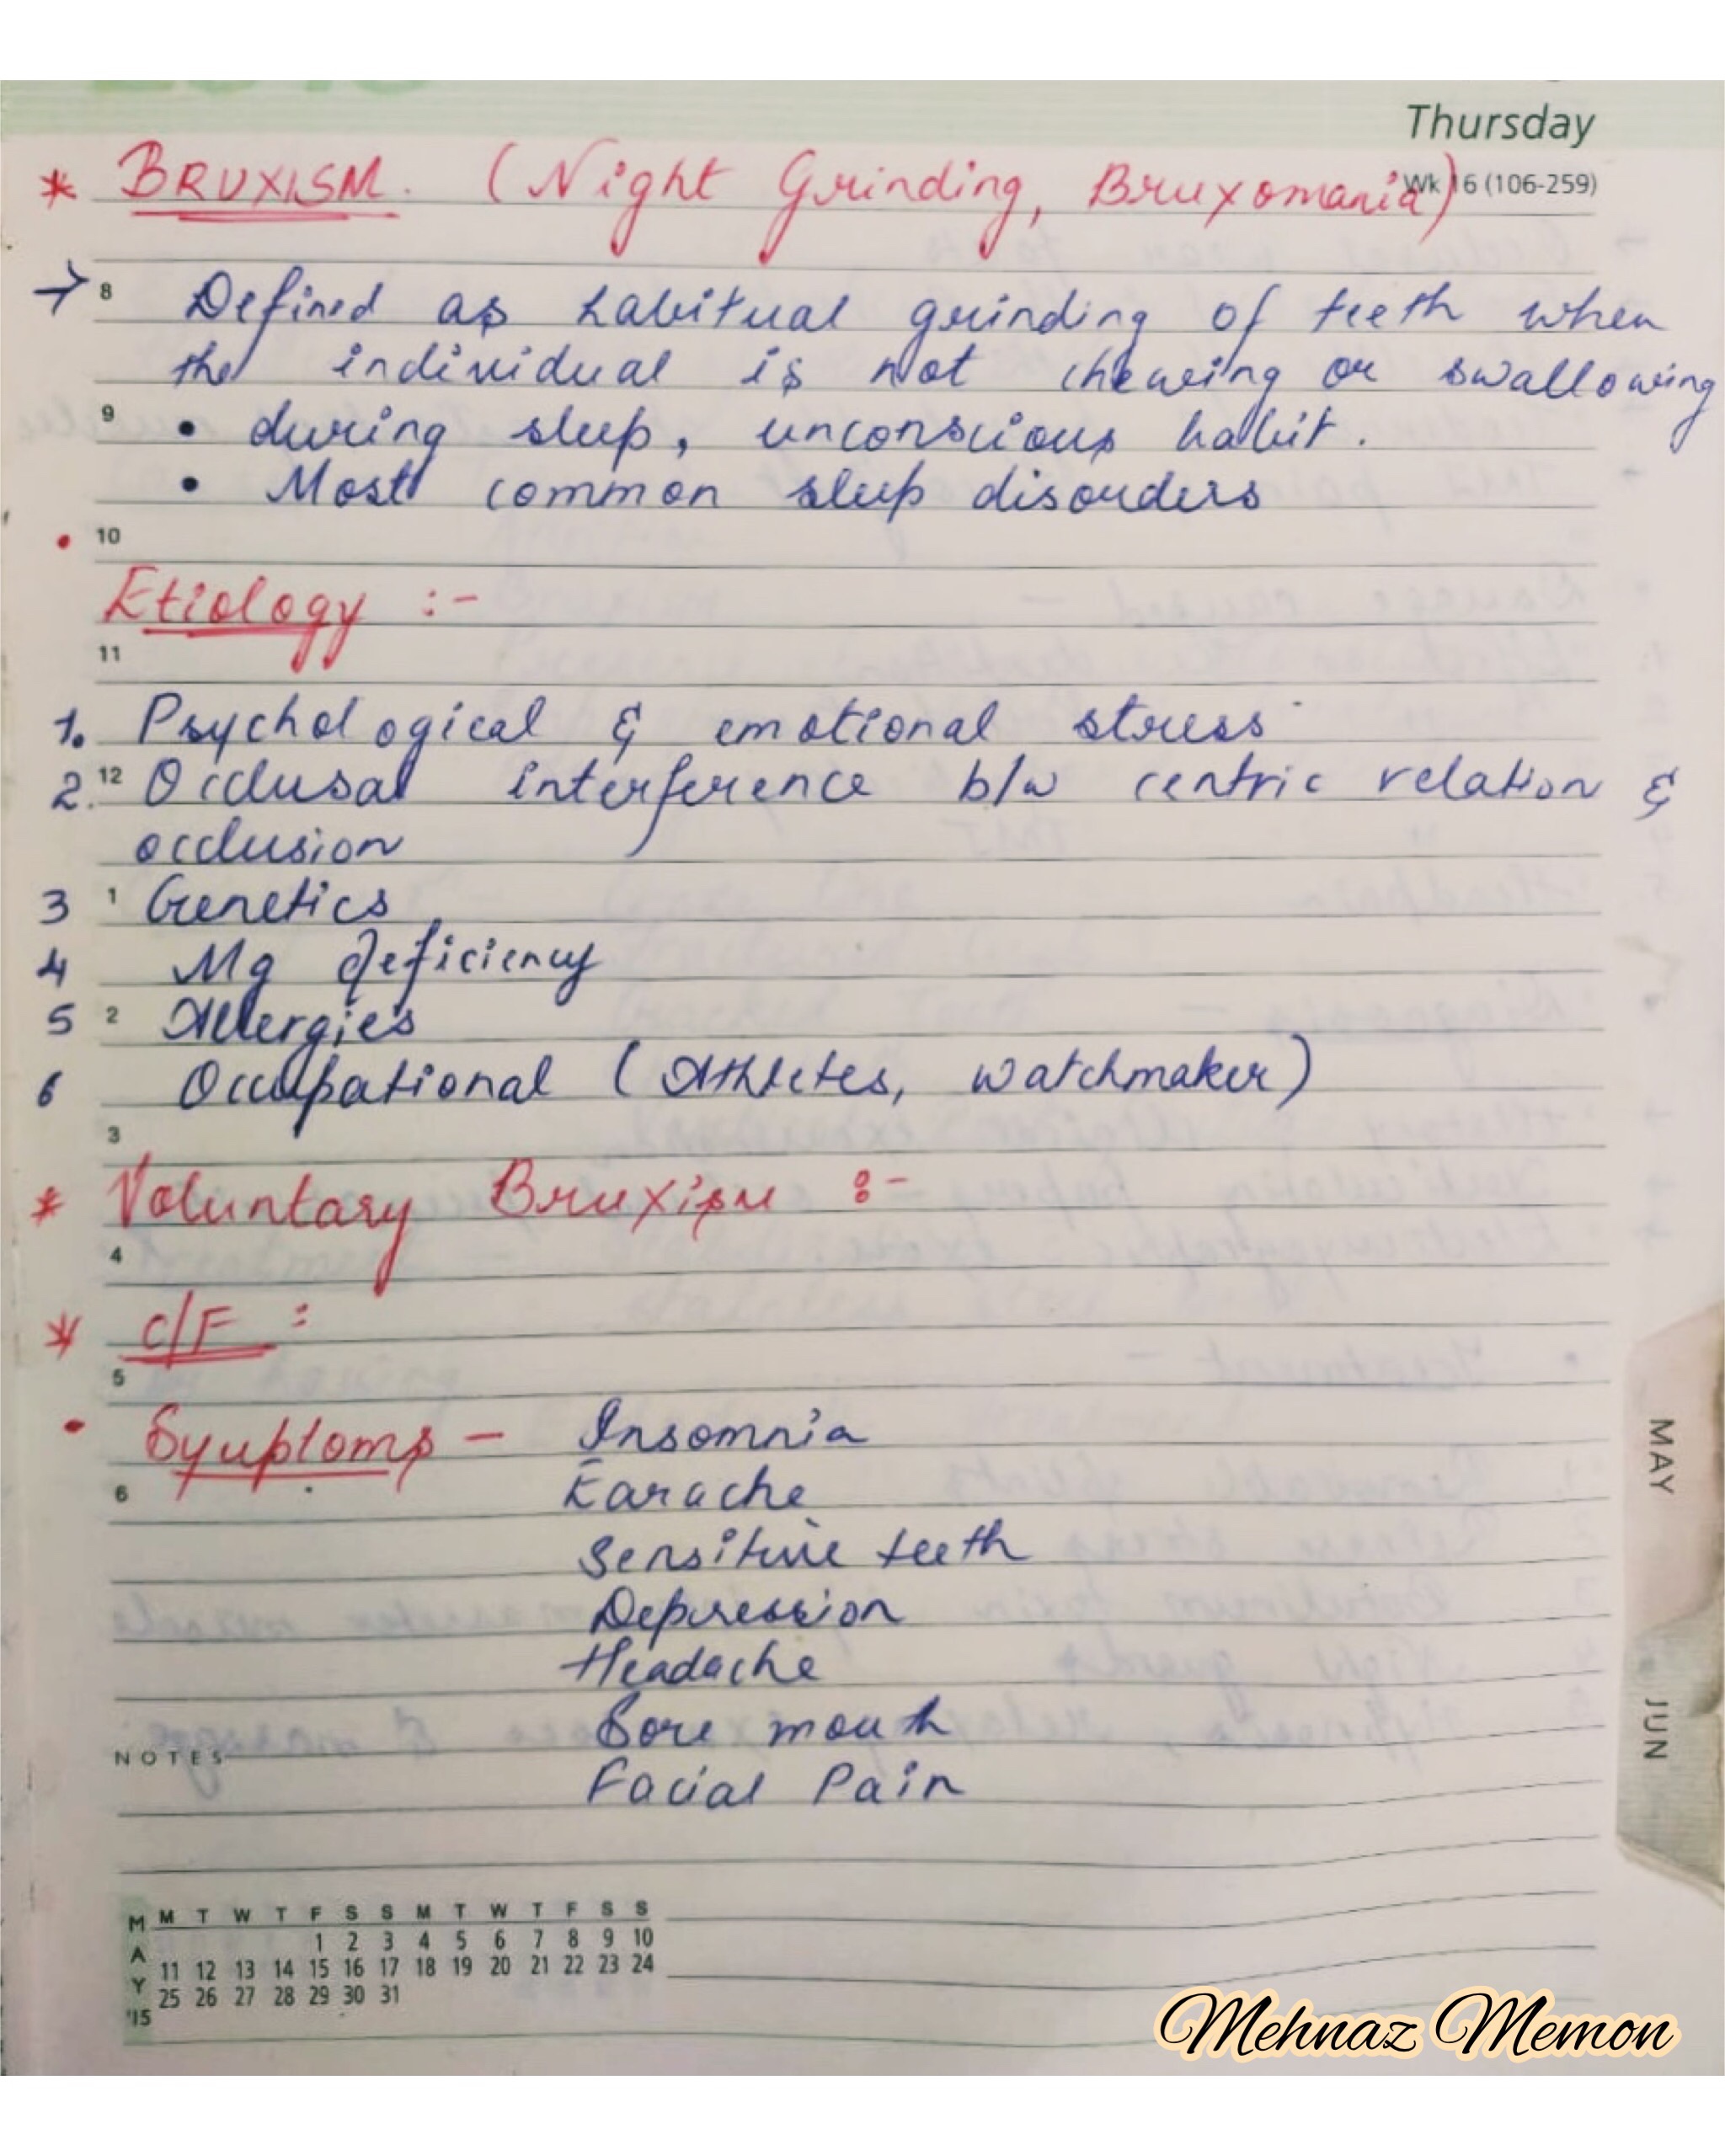 Thursday
Wk 16 (106-259)
* BRUXISM. (Night Grinding, Bruxomania)
→ 8 Defined as habitual grinding of teeth when
the individual is not chewing or swallowing
9 • during sleep, unconscious habit.
• Most common sleep disorders
• 10
Etiology :-
11
1. Psychological & emotional stress
2. 12 Occlusal interference b/w centric relation &
occlusion
3 1 Genetics
4 Mg deficiency
5 2 Allergies
6 Occupational (Athletes, watchmaker)
3
* Voluntary Bruxism :-
4
* C/F :
5
• Symptoms - Insomnia
6 Earache
Sensitive teeth
Depression
Headache
Sore mouth
NOTES
Facial Pain
MAY
JUN
MAY '15
M T W T F S S M T W T F S S
1 2 3 4 5 6 7 8 9 10
11 12 13 14 15 16 17 18 19 20 21 22 23 24
25 26 27 28 29 30 31
Mehnaz Memon